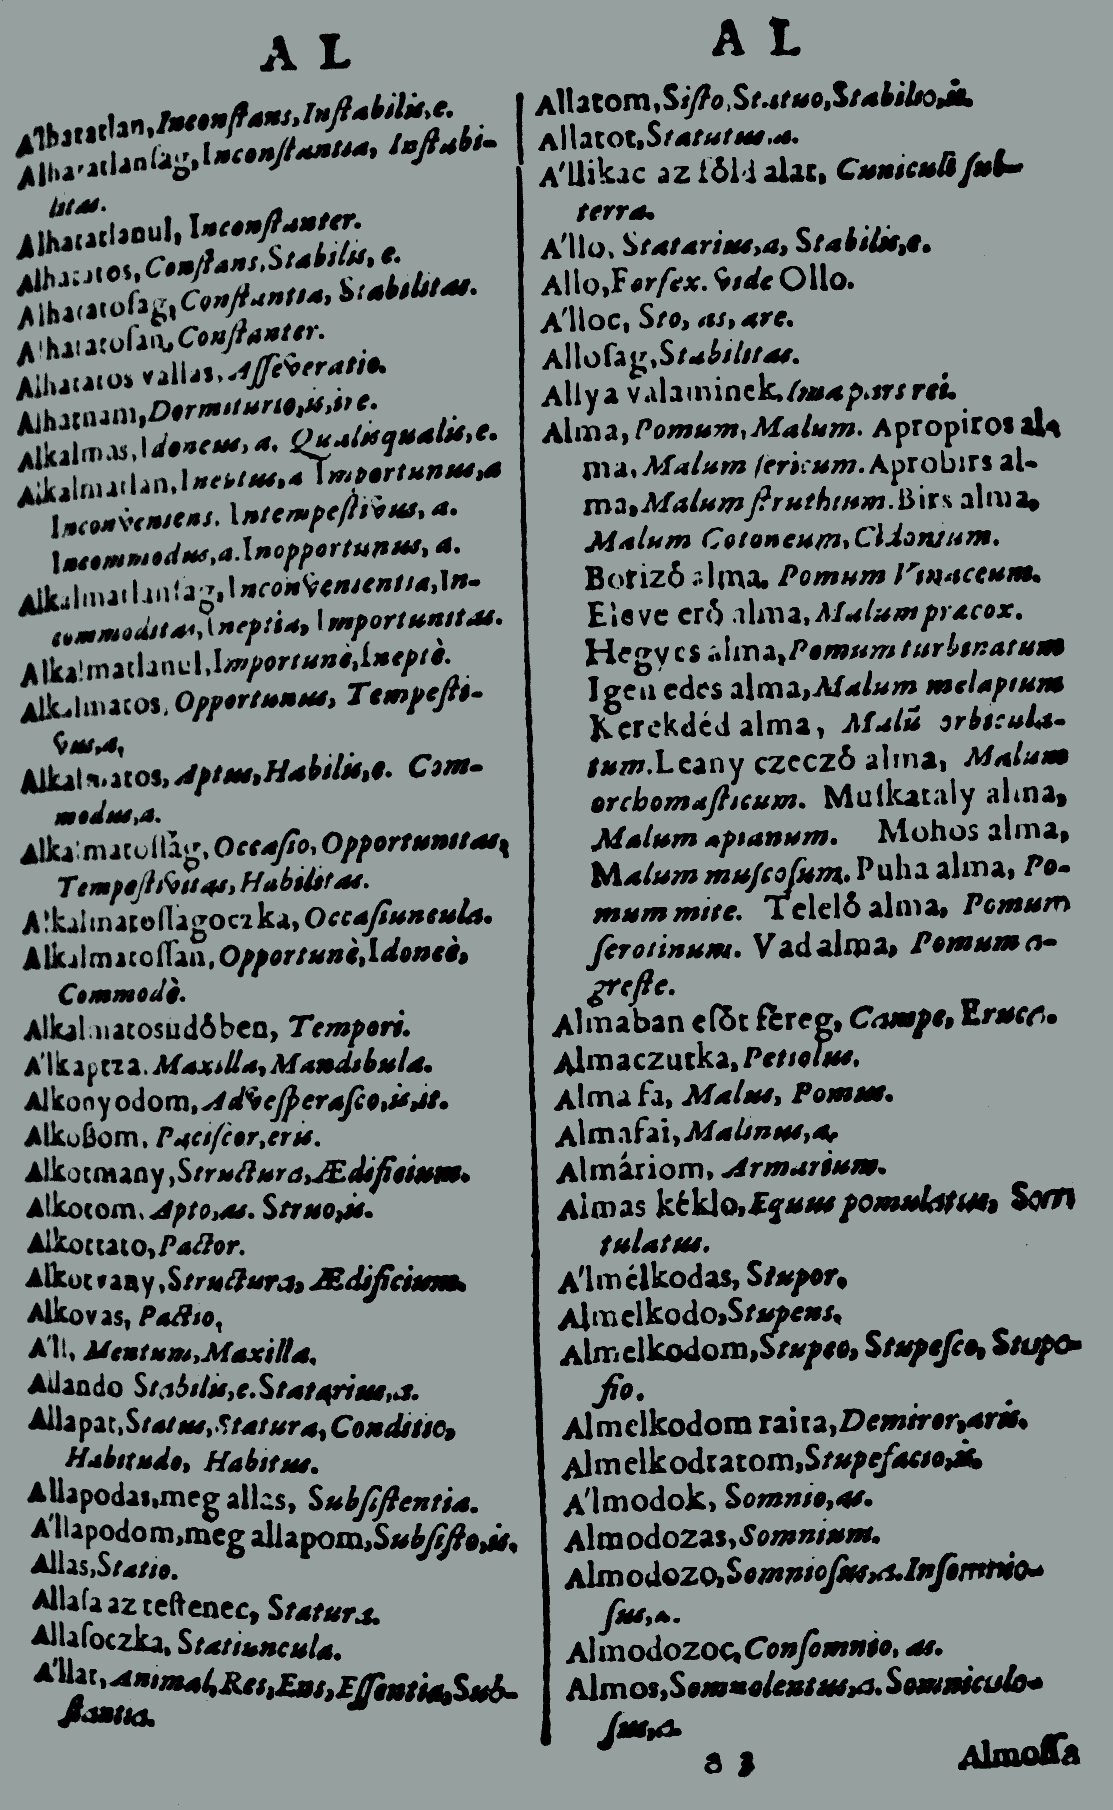 A L
A'lhatatlan, Inconſtans, Inſtabilis, e.
Alhatatlanſag, Inconſtantia, Inſtabi-
litas.
Alhatatlanul, Inconſtanter.
Alhatatos, Conſtans, Stabilis, e.
Alhatatoſag, Conſtantia, Stabilitas.
Alhatatoſan, Conſtanter.
Alhatatos vallas, Aſſeveratio.
Alhatnam, Dormiturio, is, ire.
Alkalmas, Idoneus, a. Qualisqualis, e.
Alkalmatlan, Ineptus, a Importunus, a
Inconveniens. Intempeſtivus, a.
Incommodus, a. Inopportunus, a.
Alkalmatlanſag, Inconvenientia, In-
commoditas, Ineptia, Importunitas.
Alkalmatlanul, Importunè, Ineptè.
Alkalmatos, Opportunus, Tempeſti-
vus, a,
Alkalmatos, Aptus, Habilis, e. Com-
modus, a.
Alkalmatoſſág, Occaſio, Opportunitas,
Tempeſtivitas, Habilitas.
Alkalmatoſſagoczka, Occaſiuncula.
Alkalmatoſſan, Opportunè, Idoneè,
Commodè.
Alkalmatosudóben, Tempori.
A'lkaptza. Maxilla, Mandibula.
Alkonyodom, Adveſperaſco, is, it.
Alkußom, Paciſcor, eris.
Alkotmany, Structura, Ædificium.
Alkotom, Apto, as. Struo, is.
Alkottato, Pactor.
Alkotvany, Structura, Ædificium.
Alkovas, Pactio,
A'll, Mentum, Maxilla.
Allando Stabilis, e. Statarius, a.
Allapat, Status, Statura, Conditio,
Habitudo, Habitus.
Allapodas, meg allas, Subſiſtentia.
A'llapodom, meg allapom, Subſiſto, is.
Allas, Statio.
Allaſa az teſtenec, Statura.
Allaſoczka, Statiuncula.
A'llat, Animal, Res, Ens, Eſſentia, Sub-
ſtantia.
A L
Allatom, Siſto, Statuo, Stabilio, is.
Allatot, Statutus, a.
A'llikac az fóld alat, Cuniculi ſub-
terra.
A'llo, Statarius, a, Stabilis, e.
Allo, Forfex. Vide Ollo.
A'lloc, Sto, as, are.
Alloſag, Stabilitas.
Allya valaminek, Ima pars rei.
Alma, Pomum, Malum. Apropiros al-
ma, Malum ſericum. Aprobirs al-
ma, Malum ſtruthium. Birs alma,
Malum Cotoneum, Cidonium.
Borizó alma, Pomum Vinaceum.
Eleve eró alma, Malum præcox.
Hegyes alma, Pomum turbinatum
Igen edes alma, Malum melapium
Kerekdéd alma, Malū orbicula-
tum. Leany czeczó alma, Malum
orthomaſticum. Muſkataly alma,
Malum apianum. Mohos alma,
Malum muſcoſum. Puha alma, Po-
mum mite. Telelő alma, Pomum
ſerotinum. Vad alma, Pomum a-
greſte.
Almaban eſót féreg, Campe, Eruca.
Almaczutka, Petiolus.
Alma fa, Malus, Pomus.
Almafai, Malinus, a.
Almáriom, Armarium.
Almas kéklo, Equus pomulatus, Scu
tulatus.
A'lmélkodas, Stupor,
Almelkodo, Stupens,
Almelkodom, Stupeo, Stupeſco, Stupo-
fio.
Almelkodom raita, Demiror, aris.
Almelkodtatom, Stupefacio, is.
A'lmodok, Somnio, as.
Almodozas, Somnium.
Almodozo, Somnioſus, a. Inſomnio-
ſus, a.
Almodozoc, Conſomnio, as.
Almos, Somnolentus, a. Somniculo-
ſus, a.
a 3
Almoſſa